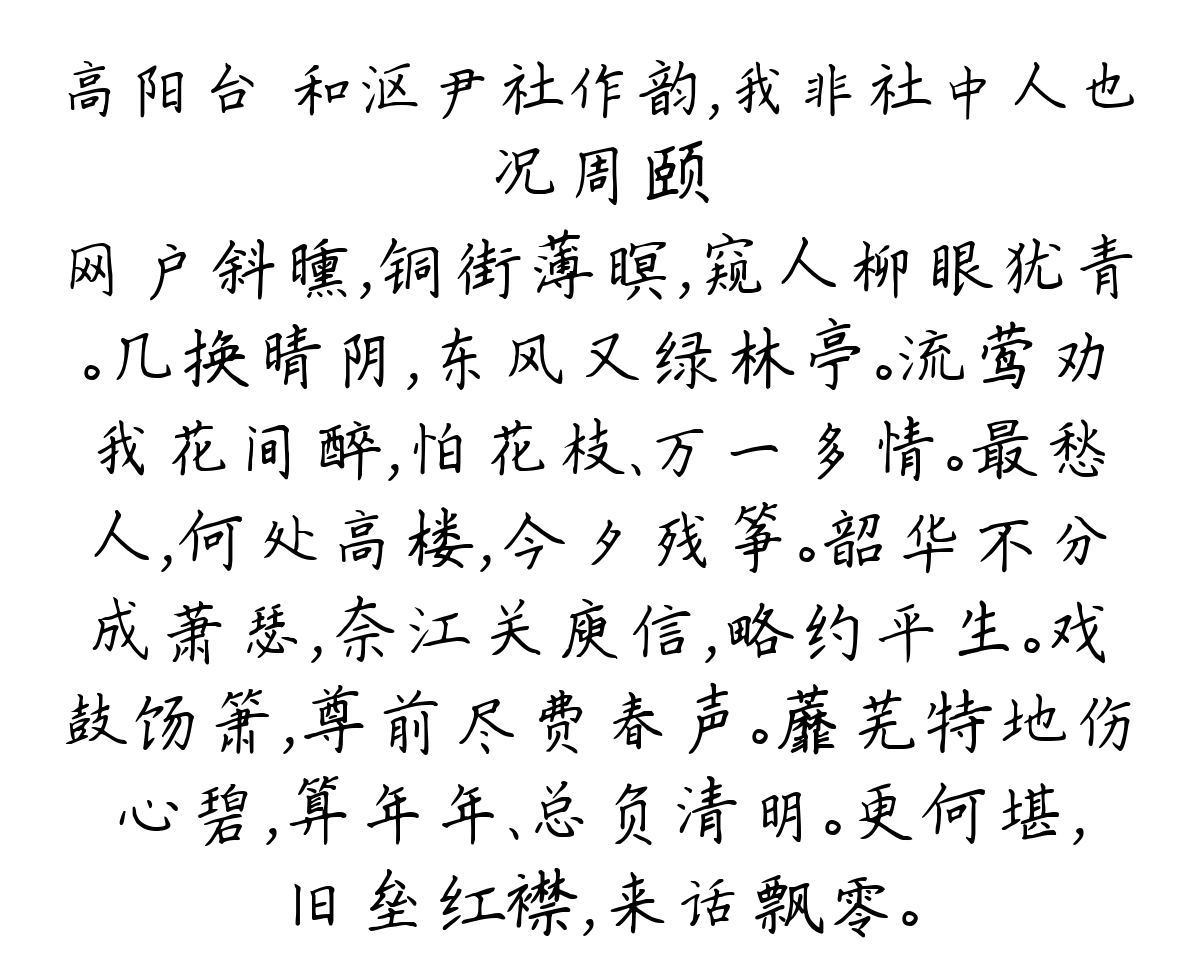 高阳台 和沤尹社作韵,我非社中人也
况周颐
网户斜曛,铜街薄暝,窥人柳眼犹青
。几换晴阴,东风又绿林亭。流莺劝
我花间醉,怕花枝、万一多情。最愁
人,何处高楼,今夕残筝。韶华不分
成萧瑟,奈江关庾信,略约平生。戏
鼓饧箫,尊前尽费春声。蘼芜特地伤
心碧,算年年、总负清明。更何堪,
旧垒红襟,来话飘零。